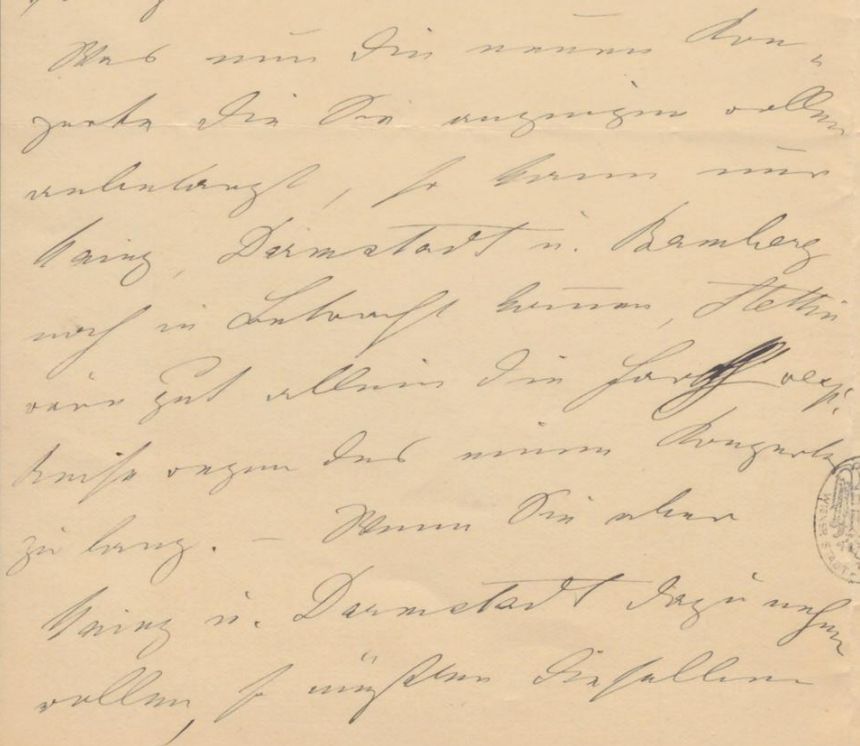 Was nun die neuen Kon-
zerte die Sie anzeigen wollen
anbelangt, so kann nur
Mainz, Darmstadt u. Bamberg
noch in Betracht kommen, Stettin
wäre gut allein die resp.
Reise wegen des einen Konzerts
zu lang. – Wenn Sie aber
Mainz u. Darmstadt dazu nehmen
wollen, so müßten dieselben